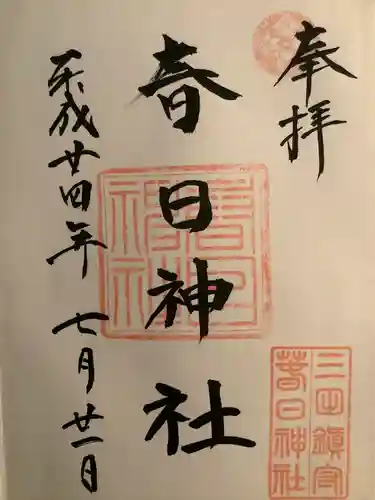 奉拝
春日神社
平成廿四年七月廿一日
春日神社
三田鎮守
春日神社